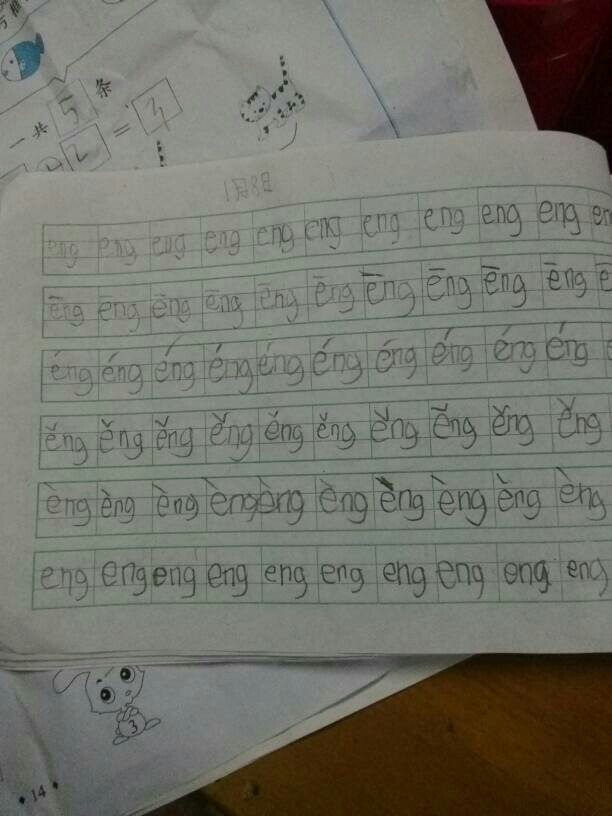 一共 5 条
2 = 3
1月8日
eng eng eng eng eng eng eng eng eng eng en
ēng eng ēng ēng ēng ēng ēng ēng ēng ēng ē
éng éng éng éng éng éng éng éng éng éng
ěng ěng ěng ěng ěng ěng ěng ěng ěng ěng
èng èng èng èng èng èng èng èng èng èng
eng eng eng eng eng eng eng eng eng eng
3
14